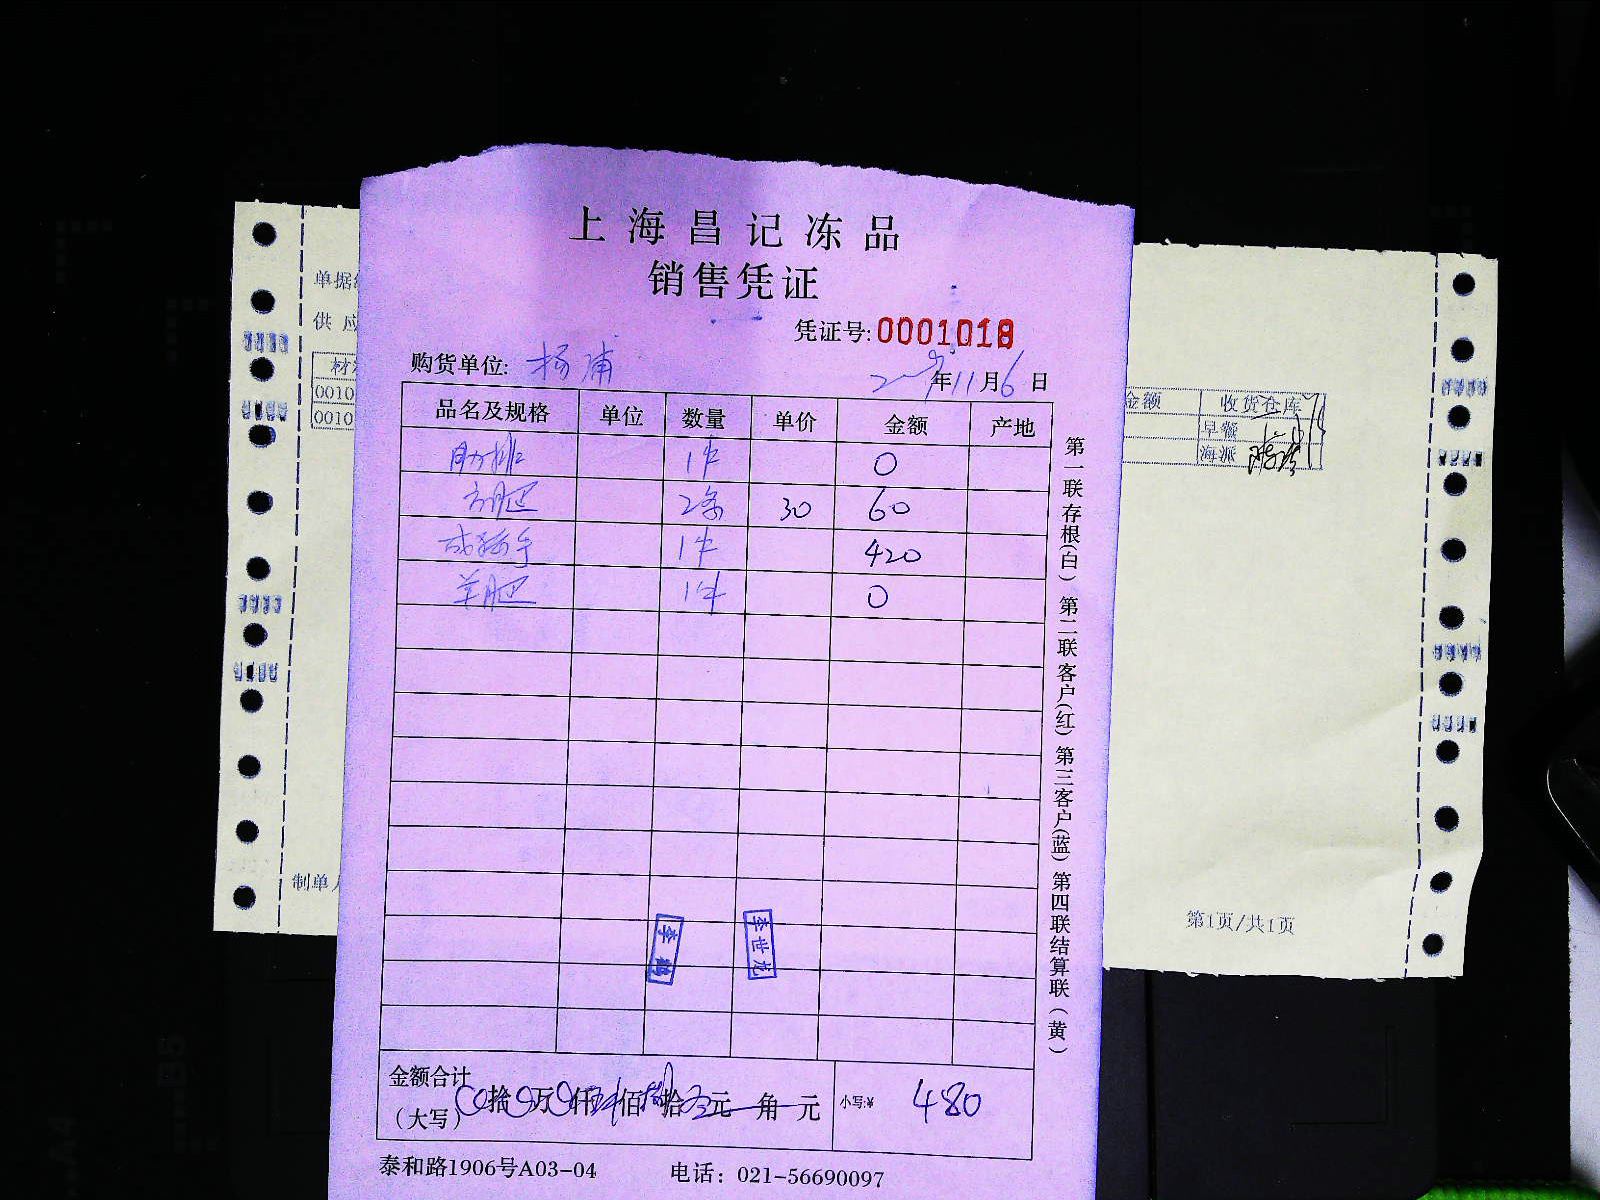 上海昌记冻品
销售凭证
凭证号:0001018
购货单位: 杨浦 年11月6日
品名及规格 单位 数量 单价 金额 产地
肋排 1件 0
方肥 2条 30 60
1件 420
羊肥 1件 0
第一联存根(白) 第二联客户(红) 第三客户(蓝) 第四联结算联(黄)
李世龙
金额合计
(大写) 拾 万 仟 佰 拾 元 角 元 小写:¥ 480
泰和路1906号A03-04 电话: 021-56690097
单据
供应
材
0010
0010
制单人
金额 收货仓库
早餐
海派
第1页/共1页